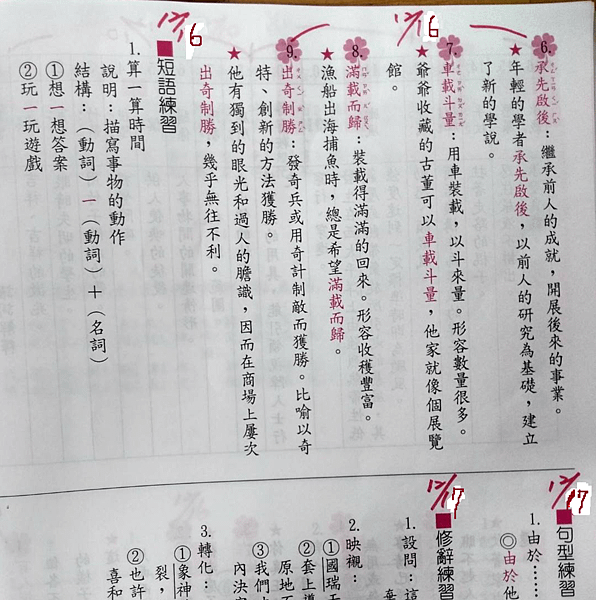 12/16
6. 承先啟後：繼承前人的成就，開展後來的事業。
★年輕的學者承先啟後，以前人的研究為基礎，建立
了新的學說。
7. 車載斗量：用車裝載，以斗來量。形容數量很多。
★爺爺收藏的古董可以車載斗量，他家就像個展覽
館。
8. 滿載而歸：裝載得滿滿的回來。形容收穫豐富。
★漁船出海捕魚時，總是希望滿載而歸。
9. 出奇制勝：發奇兵或用奇計制敵而獲勝。比喻以奇
特、創新的方法獲勝。
★他有獨到的眼光和過人的膽識，因而在商場上屢次
出奇制勝，幾乎無往不利。
12/16
■短語練習
1. 算一算時間
說明：描寫事物的動作
結構：（動詞）一（動詞）＋（名詞）
①想一想答案
②玩一玩遊戲
12/17
■句型練習
1. 由於……
◎由於他
12/17
■修辭練習
1. 設問：這
2. 映襯：
①國瑞王
②套上遺
原地
③我們
內決
3. 轉化：
①象神
裂，
②也許
喜和